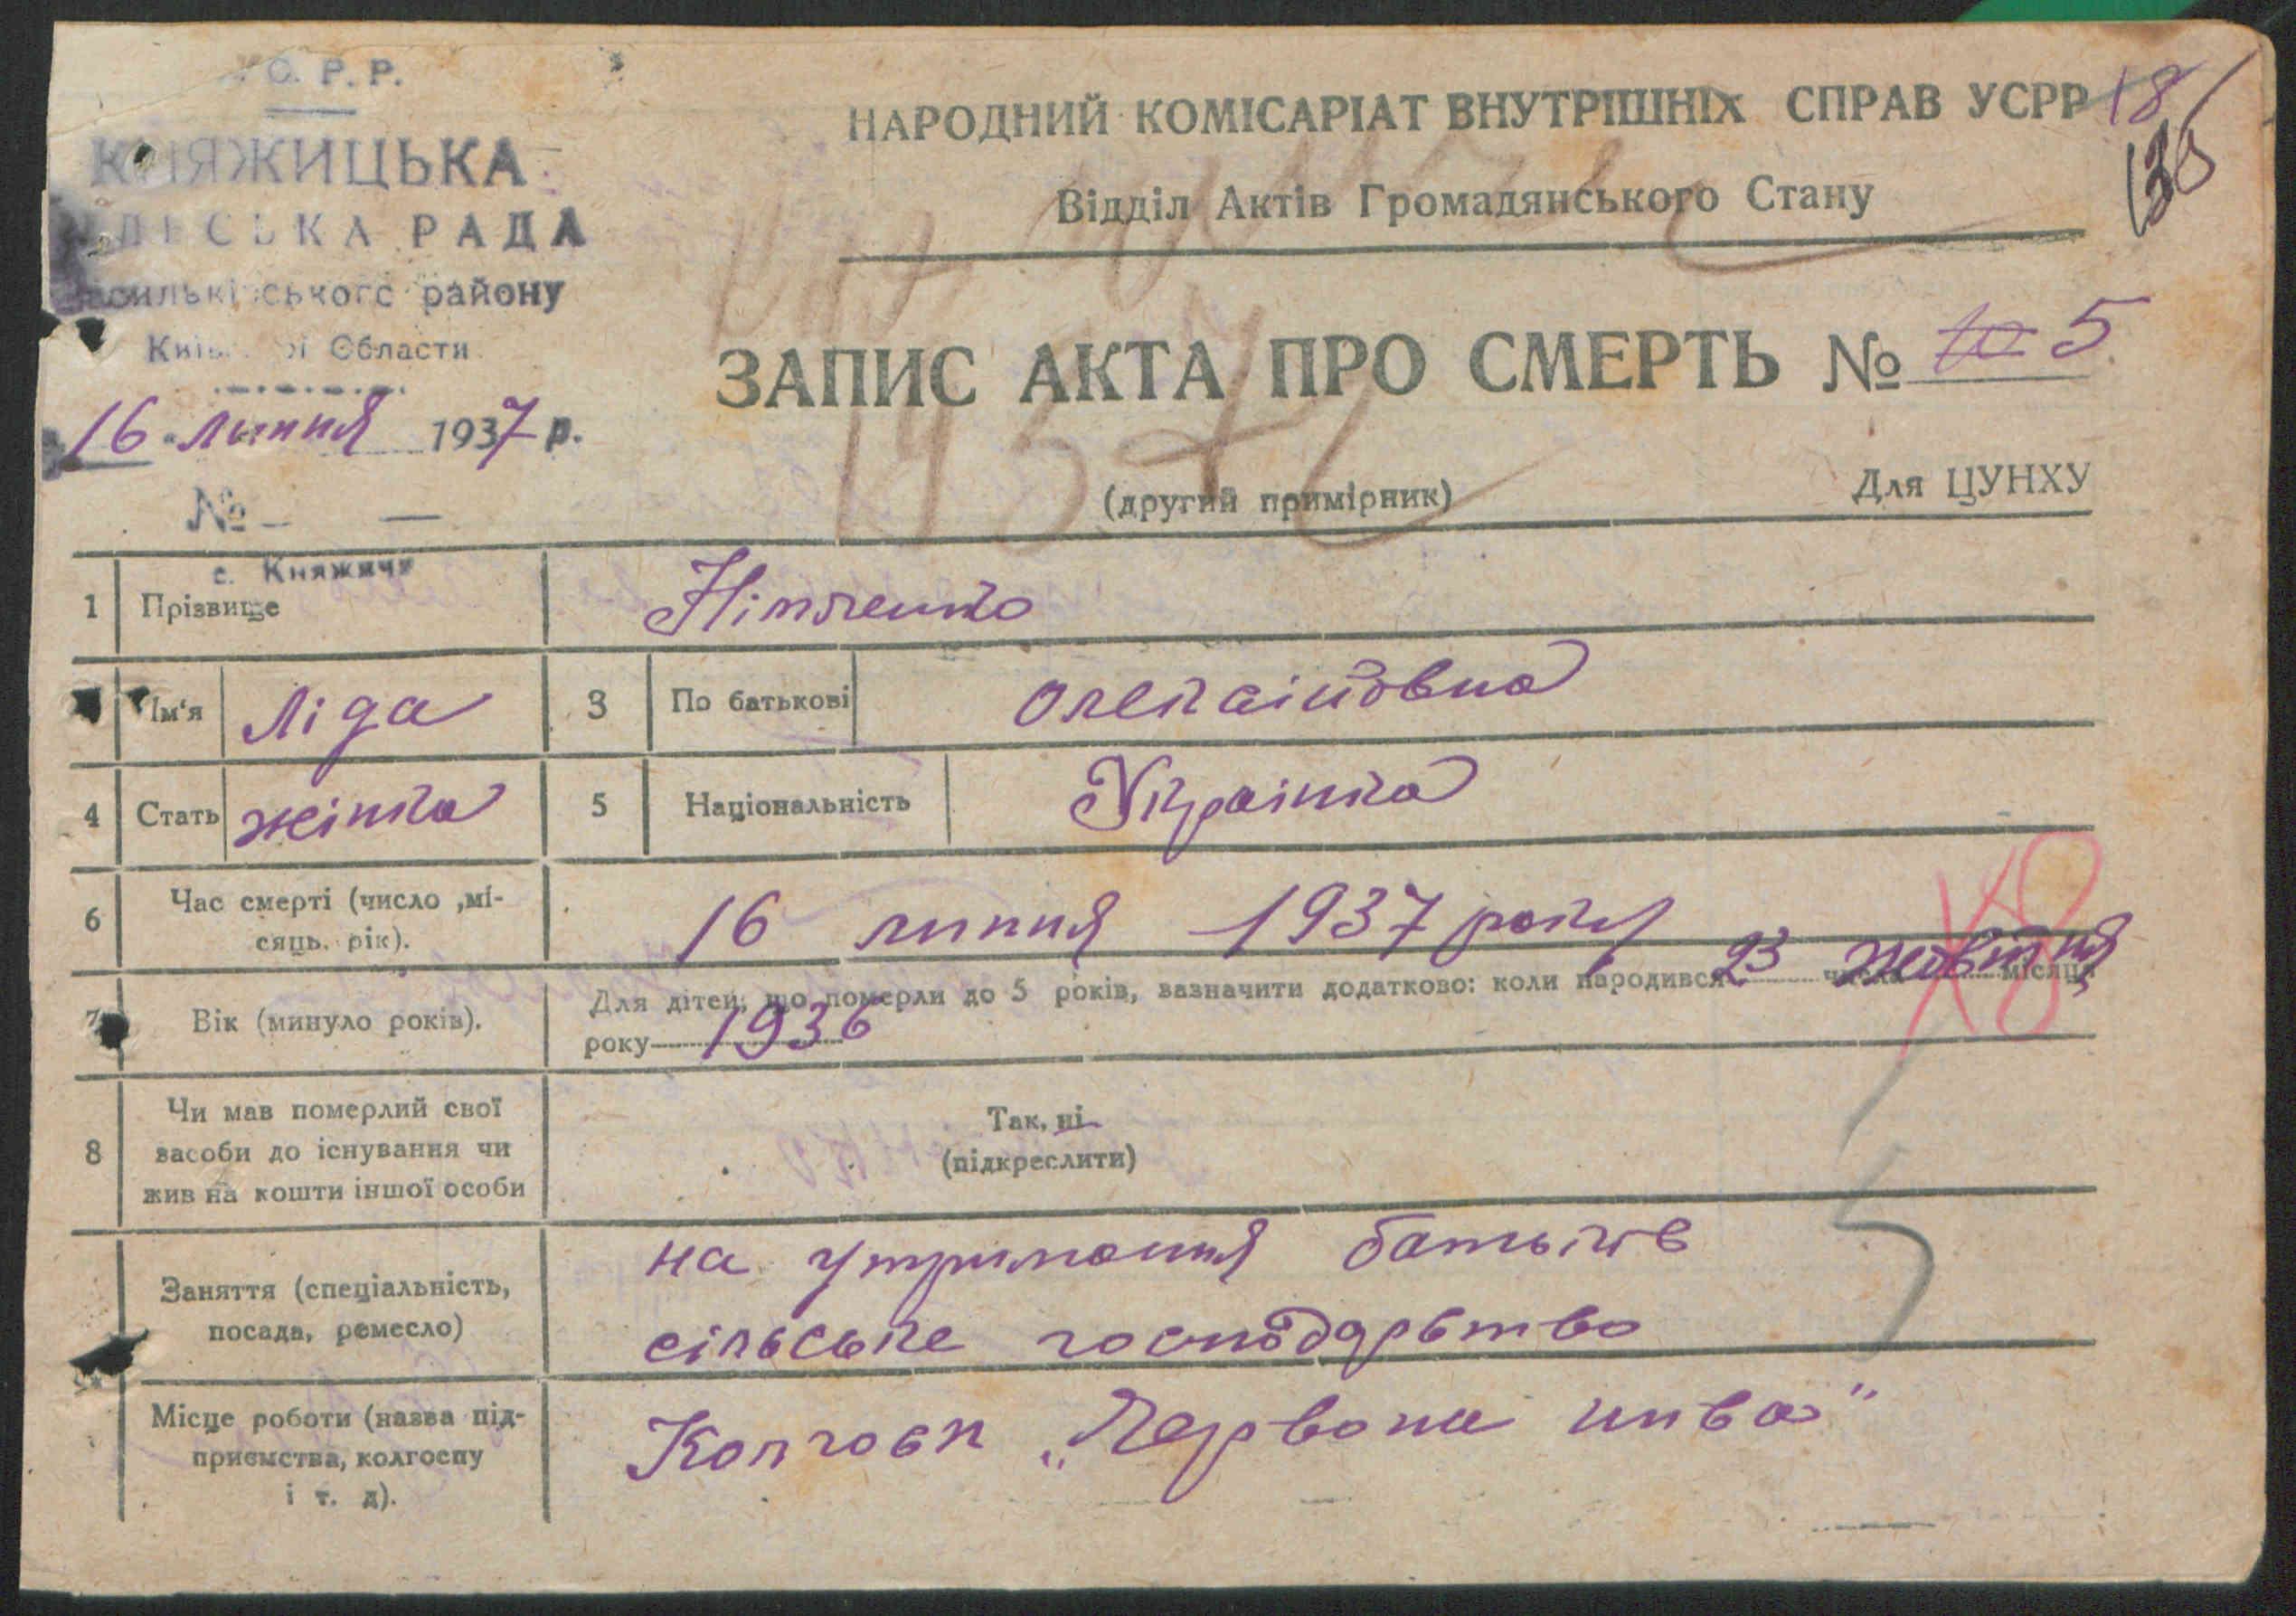 С. Р. Р.
КНЯЖИЦЬКА
РАДА
району
Области
16 липня 1937 р.
№ — —
с. Княжичи
НАРОДНИЙ КОМІСАРІАТ ВНУТРІШНІХ СПРАВ УСРР
18
135
Відділ Актів Громадянського Стану
ЗАПИС АКТА ПРО СМЕРТЬ № 10 5
1937
(другий примірник)
Для ЦУНХУ
1 Прізвище
Ім'я Ліда 3 По батькові Олексіївна
4 Стать жінка 5 Національність Українка
6 Час смерті (число ,мі-
сяць. рік).
16 липня 1937 року
7 Вік (минуло років).
Для дітей, що померли до 5 років, зазначити додатково: коли народився 23 числа жовтня місяця
року 1936
8 Чи мав померлий свої
засоби до існування чи
жив на кошти іншої особи
Так, ні
(підкреслити)
5
Заняття (спеціальність,
посада, ремесло)
на утримання батьків
сільське господарьтво
Місце роботи (назва під-
приємства, колгоспу
і т. д).
Колгосп „Червона нива"